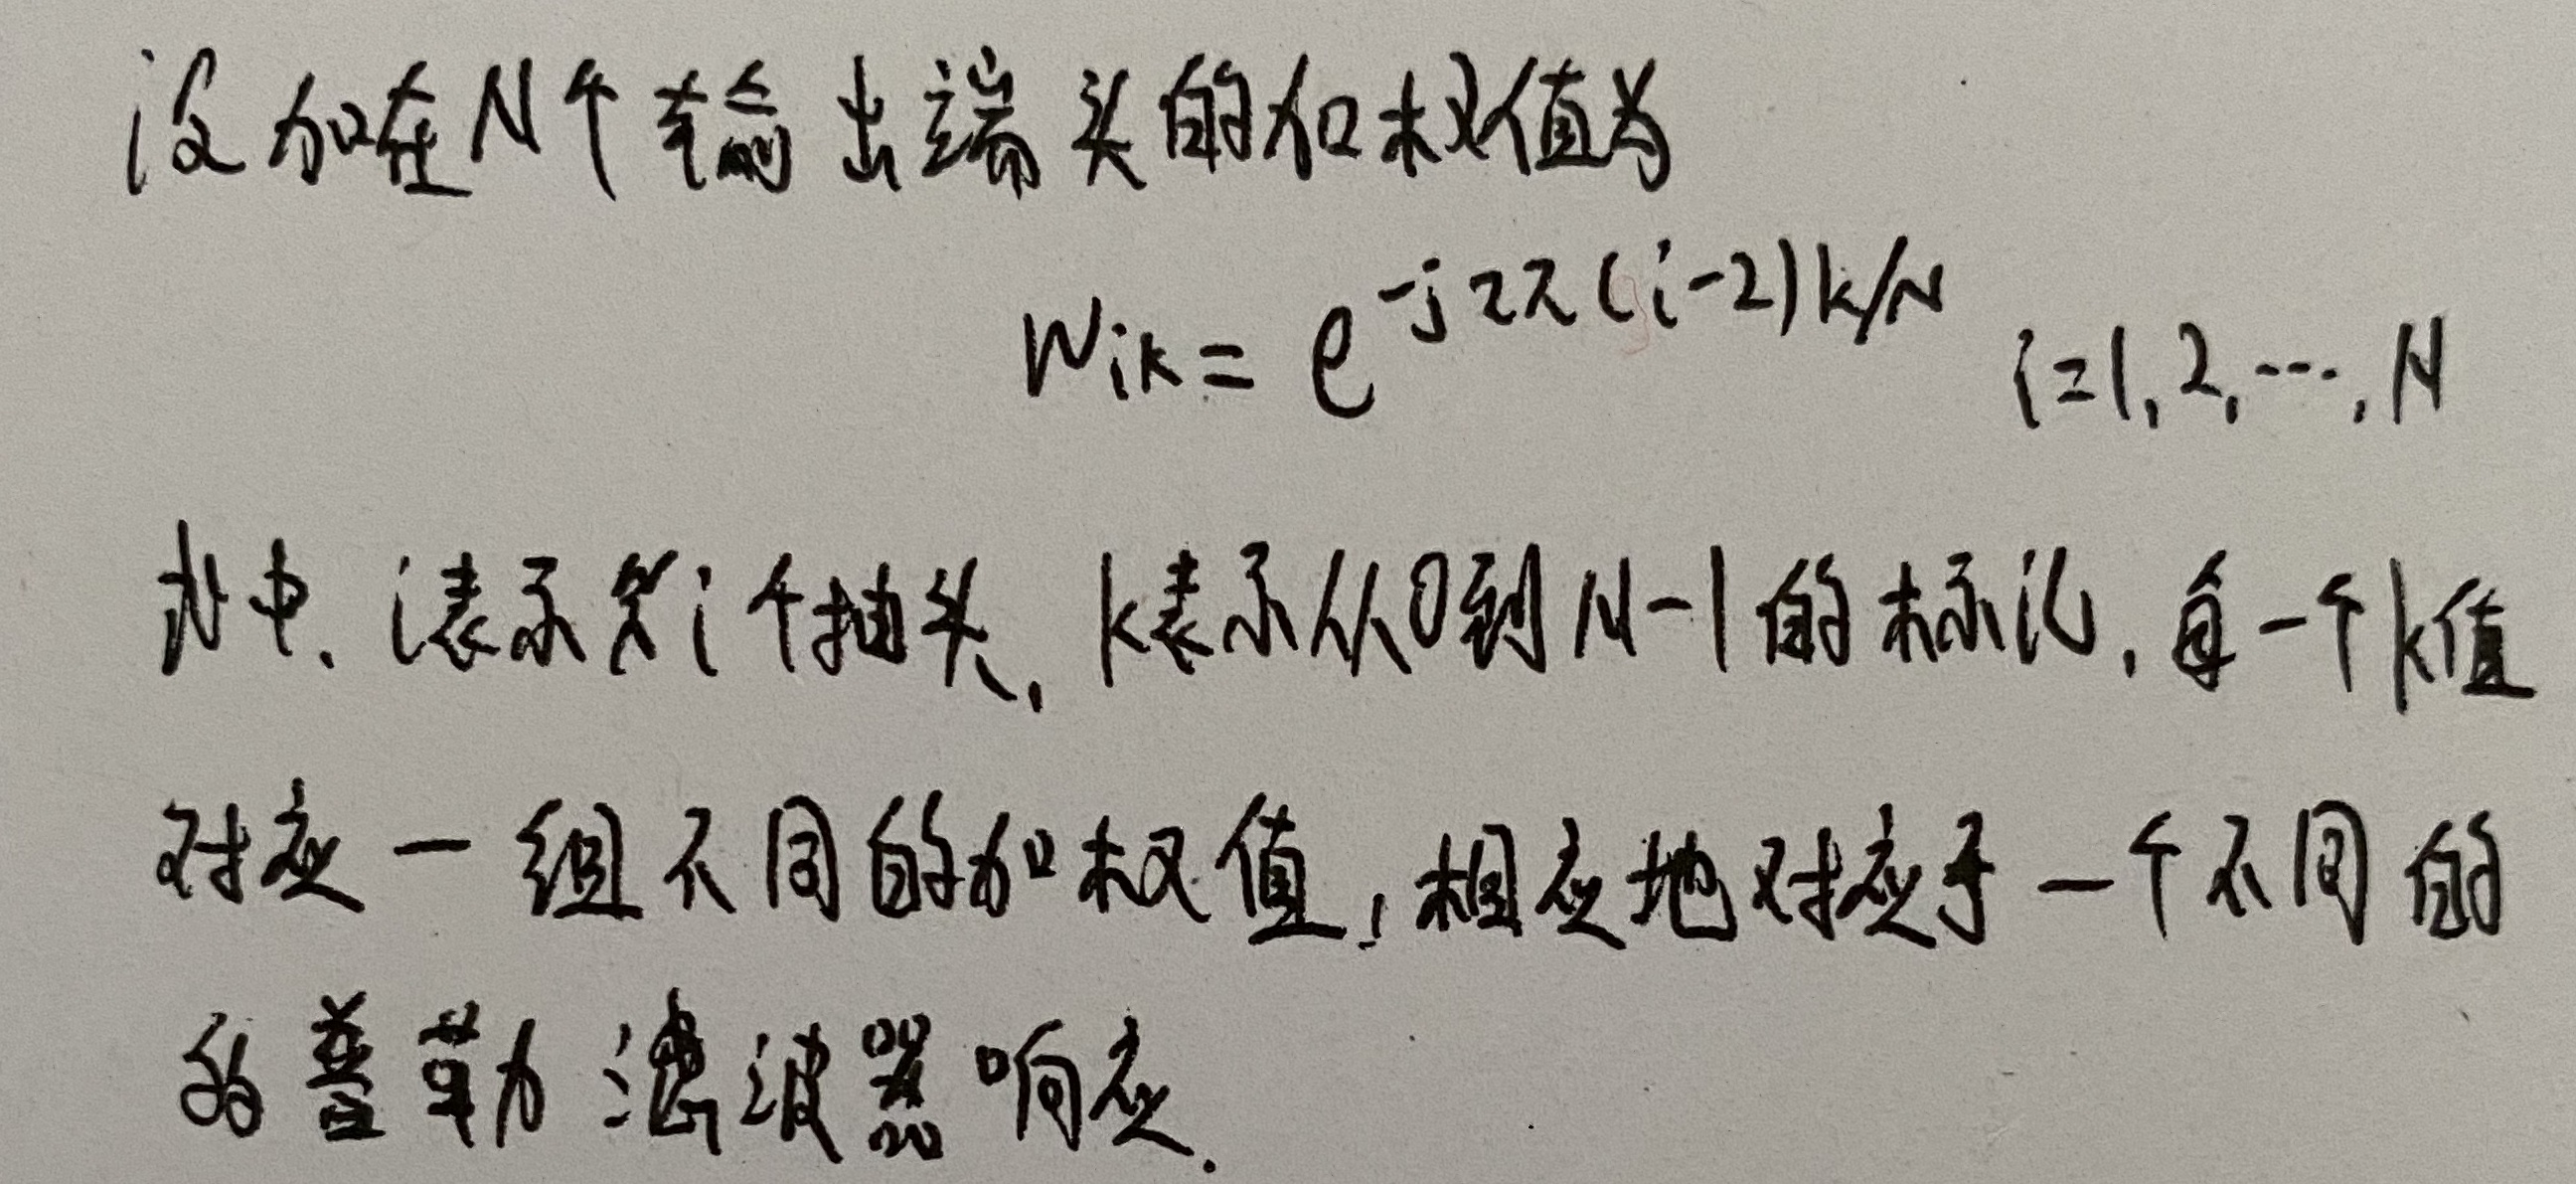 设加在N个输出端头的加权值为
Wik = e^{-j2π(i-2)k/N} i=1,2,…,N
其中.i表示第i个抽头,k表示从0到N-1的标记,每一个k值
对应一组不同的加权值,相应地对应于一个不同的
的普勒滤波器响应.